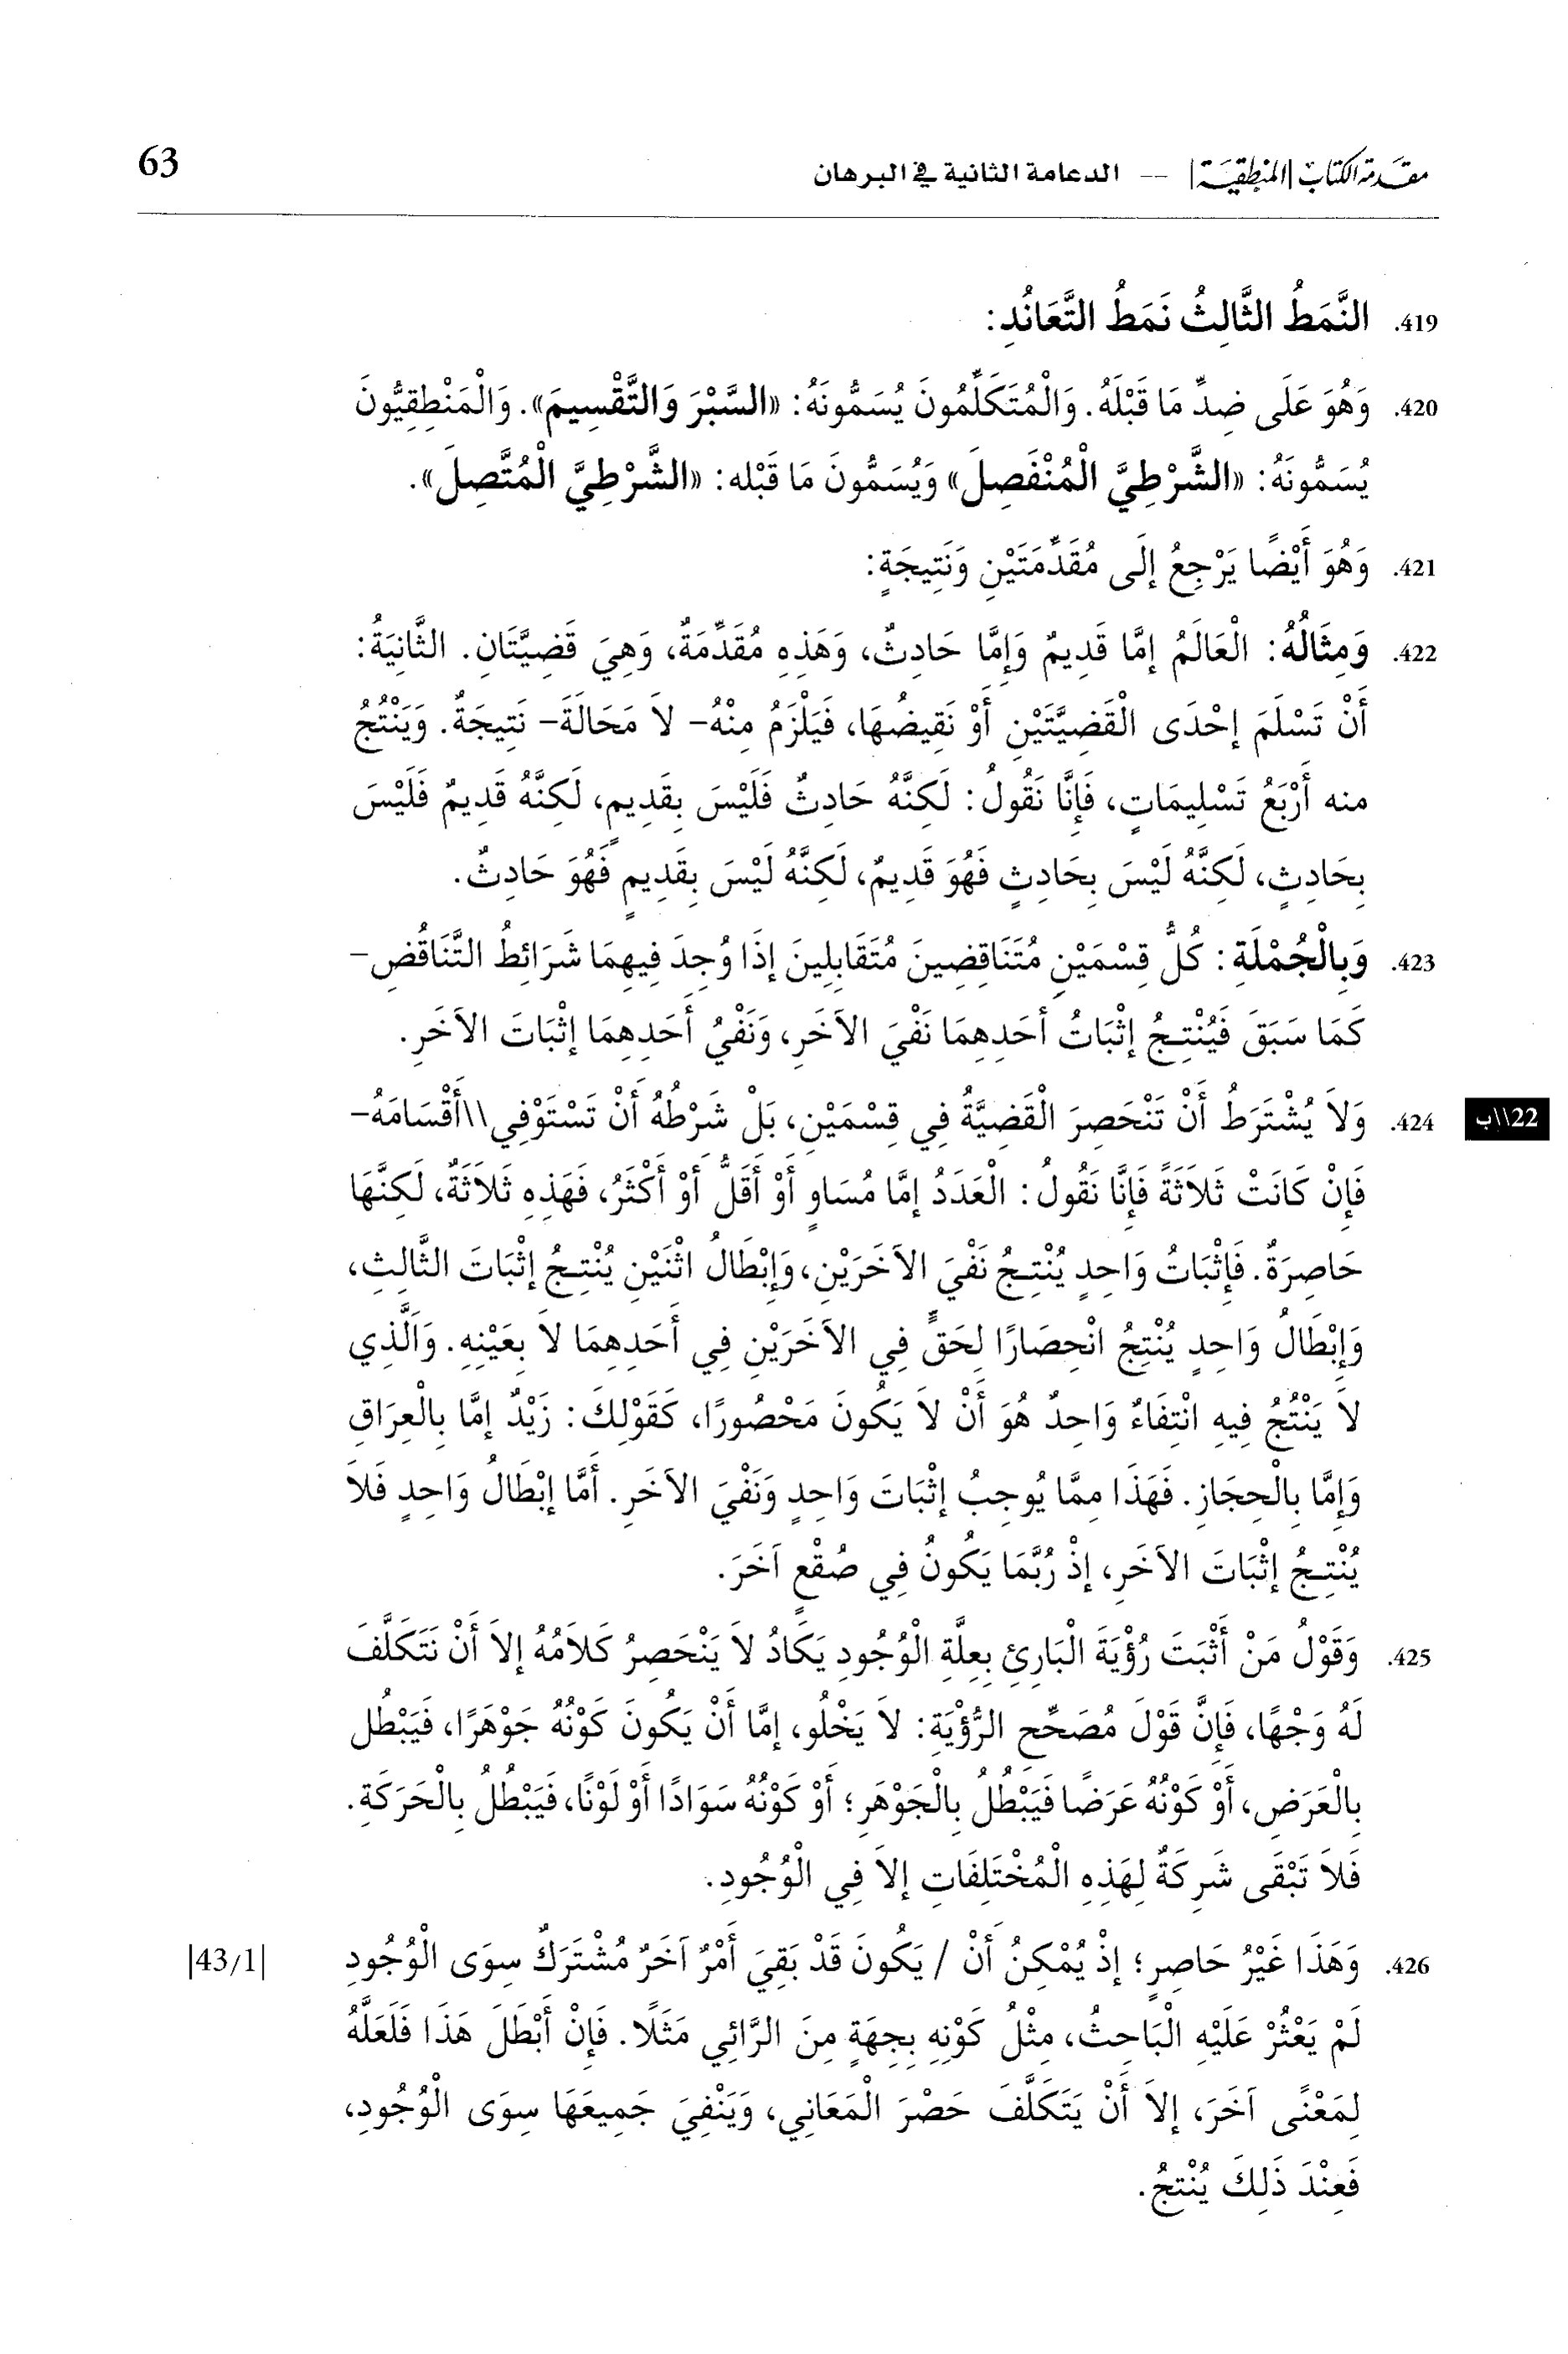 مقدمة الكتاب |المنطقية| -- الدعامة الثانية في البرهان 63
419. النَّمَطُ الثَّالِثُ نَمَطُ التَّعَانُدِ:
420. وَهُوَ عَلَى ضِدِّ مَا قَبْلَهُ. وَالْمُتَكَلِّمُونَ يُسَمُّونَهُ: «السَّبْرَ وَالتَّقْسِيمَ». وَالْمَنْطِقِيُّونَ
يُسَمُّونَهُ: «الشَّرْطِيَّ الْمُنْفَصِلَ» وَيُسَمُّونَ مَا قَبْله: «الشَّرْطِيَّ الْمُتَّصِلَ».
421. وَهُوَ أَيْضًا يَرْجِعُ إِلَى مُقَدِّمَتَيْنِ وَنَتِيجَةٍ:
422. وَمِثَالُهُ: الْعَالَمُ إِمَّا قَدِيمٌ وَإِمَّا حَادِثٌ، وَهَذِهِ مُقَدِّمَةٌ، وَهِيَ قَضِيَّتَانِ. الثَّانِيَةُ:
أَنْ تَسْلَمَ إِحْدَى الْقَضِيَّتَيْنِ أَوْ نَقِيضُهَا، فَيَلْزَمُ مِنْهُ- لاَ مَحَالَةَ- نَتِيجَةٌ. وَيَنْتُجُ
منه أَرْبَعُ تَسْلِيمَاتٍ، فَإِنَّا نَقُولُ: لَكِنَّهُ حَادِثٌ فَلَيْسَ بِقَدِيمٍ، لَكِنَّهُ قَدِيمٌ فَلَيْسَ
بِحَادِثٍ، لَكِنَّهُ لَيْسَ بِحَادِثٍ فَهُوَ قَدِيمٌ، لَكِنَّهُ لَيْسَ بِقَدِيمٍ فَهُوَ حَادِثٌ.
423. وَبِالْجُمْلَةِ: كُلُّ قِسْمَيْنِ مُتَنَاقِضِينَ مُتَقَابِلِينَ إِذَا وُجِدَ فِيهِمَا شَرَائِطُ التَّنَاقُضِ-
كَمَا سَبَقَ فَيُنْتِجُ إِثْبَاتُ أَحَدِهِمَا نَفْيَ الآخَرِ، وَنَفْيُ أَحَدِهِمَا إِثْبَاتَ الآخَرِ.
424. وَلاَ يُشْتَرَطُ أَنْ تَنْحَصِرَ الْقَضِيَّةُ فِي قِسْمَيْنِ، بَلْ شَرْطُهُ أَنْ تَسْتَوْفِي\\أَقْسَامَهُ- 22\\ب
فَإِنْ كَانَتْ ثَلاَثَةً فَإِنَّا نَقُولُ: الْعَدَدُ إِمَّا مُسَاوٍ أَوْ أَقَلُّ أَوْ أَكْثَرُ، فَهَذِهِ ثَلاَثَةٌ، لَكِنَّهَا
حَاصِرَةٌ. فَإِثْبَاتُ وَاحِدٍ يُنْتِجُ نَفْيَ الآخَرَيْنِ، وَإِبْطَالُ اثْنَيْنِ يُنْتِجُ إِثْبَاتَ الثَّالِثِ،
وَإِبْطَالُ وَاحِدٍ يُنْتِجُ انْحِصَارًا لِحَقٍّ فِي الآخَرَيْنِ فِي أَحَدِهِمَا لاَ بِعَيْنِهِ. وَالَّذِي
لاَ يَنْتُجُ فِيهِ انْتِفَاءٌ وَاحِدٌ هُوَ أَنْ لاَ يَكُونَ مَحْصُورًا، كَقَوْلِكَ: زَيْدٌ إِمَّا بِالْعِرَاقِ
وَإِمَّا بِالْحِجَازِ. فَهَذَا مِمَّا يُوجِبُ إِثْبَاتَ وَاحِدٍ وَنَفْيَ الآخَرِ. أَمَّا إِبْطَالُ وَاحِدٍ فَلاَ
يُنْتِجُ إِثْبَاتَ الآخَرِ، إِذْ رُبَّمَا يَكُونُ فِي صُقْعٍ آخَرَ.
425. وَقَوْلُ مَنْ أَثْبَتَ رُؤْيَةَ الْبَارِئِ بِعِلَّةِ الْوُجُودِ يَكَادُ لاَ يَنْحَصِرُ كَلاَمُهُ إِلاَ أَنْ نَتَكَلَّفَ
لَهُ وَجْهًا، فَإِنَّ قَوْلَ مُصَحِّحِ الرُّؤْيَةِ: لاَ يَخْلُو، إِمَّا أَنْ يَكُونَ كَوْنُهُ جَوْهَرًا، فَيَبْطُل
بِالْعَرَضِ، أَوْ كَوْنُهُ عَرَضًا فَيَبْطُلُ بِالْجَوْهَرِ؛ أَوْ كَوْنُهُ سَوَادًا أَوْ لَوْنًا، فَيَبْطُلُ بِالْحَرَكَةِ.
فَلاَ تَبْقَى شَرِكَةٌ لِهَذِهِ الْمُخْتَلِفَاتِ إِلاَ فِي الْوُجُودِ.
426. وَهَذَا غَيْرُ حَاصِرٍ؛ إِذْ يُمْكِنُ أَنْ / يَكُونَ قَدْ بَقِيَ أَمْرٌ آخَرُ مُشْتَرَكٌ سِوَى الْوُجُودِ |43/1|
لَمْ يَعْثُرْ عَلَيْهِ الْبَاحِثُ، مِثْلُ كَوْنِهِ بِجِهَةٍ مِنَ الرَّائِي مَثَلًا. فَإِنْ أَبْطَلَ هَذَا فَلَعَلَّهُ
لِمَعْنًى آخَرَ، إِلاَ أَنْ يَتَكَلَّفَ حَصْرَ الْمَعَانِي، وَيَنْفِيَ جَمِيعَهَا سِوَى الْوُجُودِ،
فَعِنْدَ ذَلِكَ يُنْتجُ.